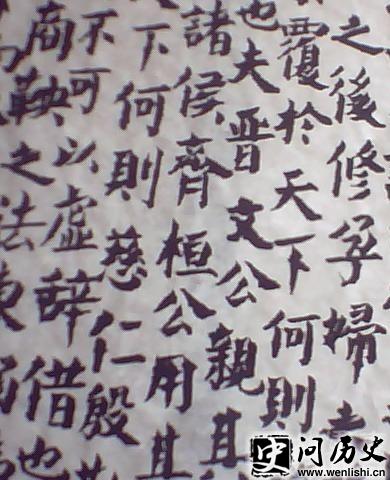 之後修孕婦
覆於天下何則
也夫晉文公親其
諸侯齊桓公用其
下何則慈仁殷
不可以虛辭借也
商鞅之法東
问历史
www.wenlishi.cn